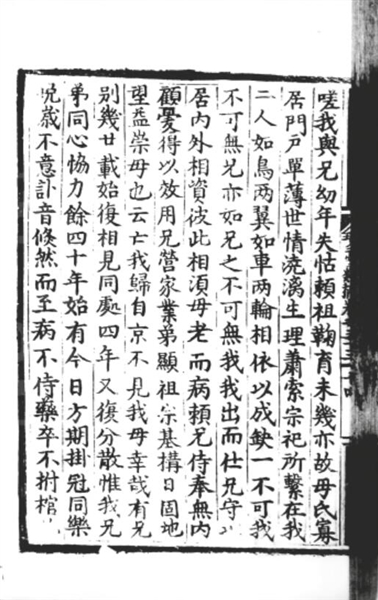 嗟我與兄幼年失怙賴祖鞠育未幾亦故母氏寡
居門戸單薄世情澆漓生理蕭索宗祀所繫在我
二人如鳥兩翼如車兩輪相依以成缺一不可我
不可無兄亦如兄之不可無我我出而仕兄守
居內外相資彼此相須母老而病賴兄侍奉無內
顧憂得以效用兄營家業弟顯祖宗基構日固地
望益崇母也云亡我歸自京不見我母幸哉有兄
別幾廿載始復相見同處四年又復分散惟我兄
弟同心恊力餘四十年始有今日方期掛冠同樂
晩歲不意訃音倐然而至病不侍藥卒不拊棺